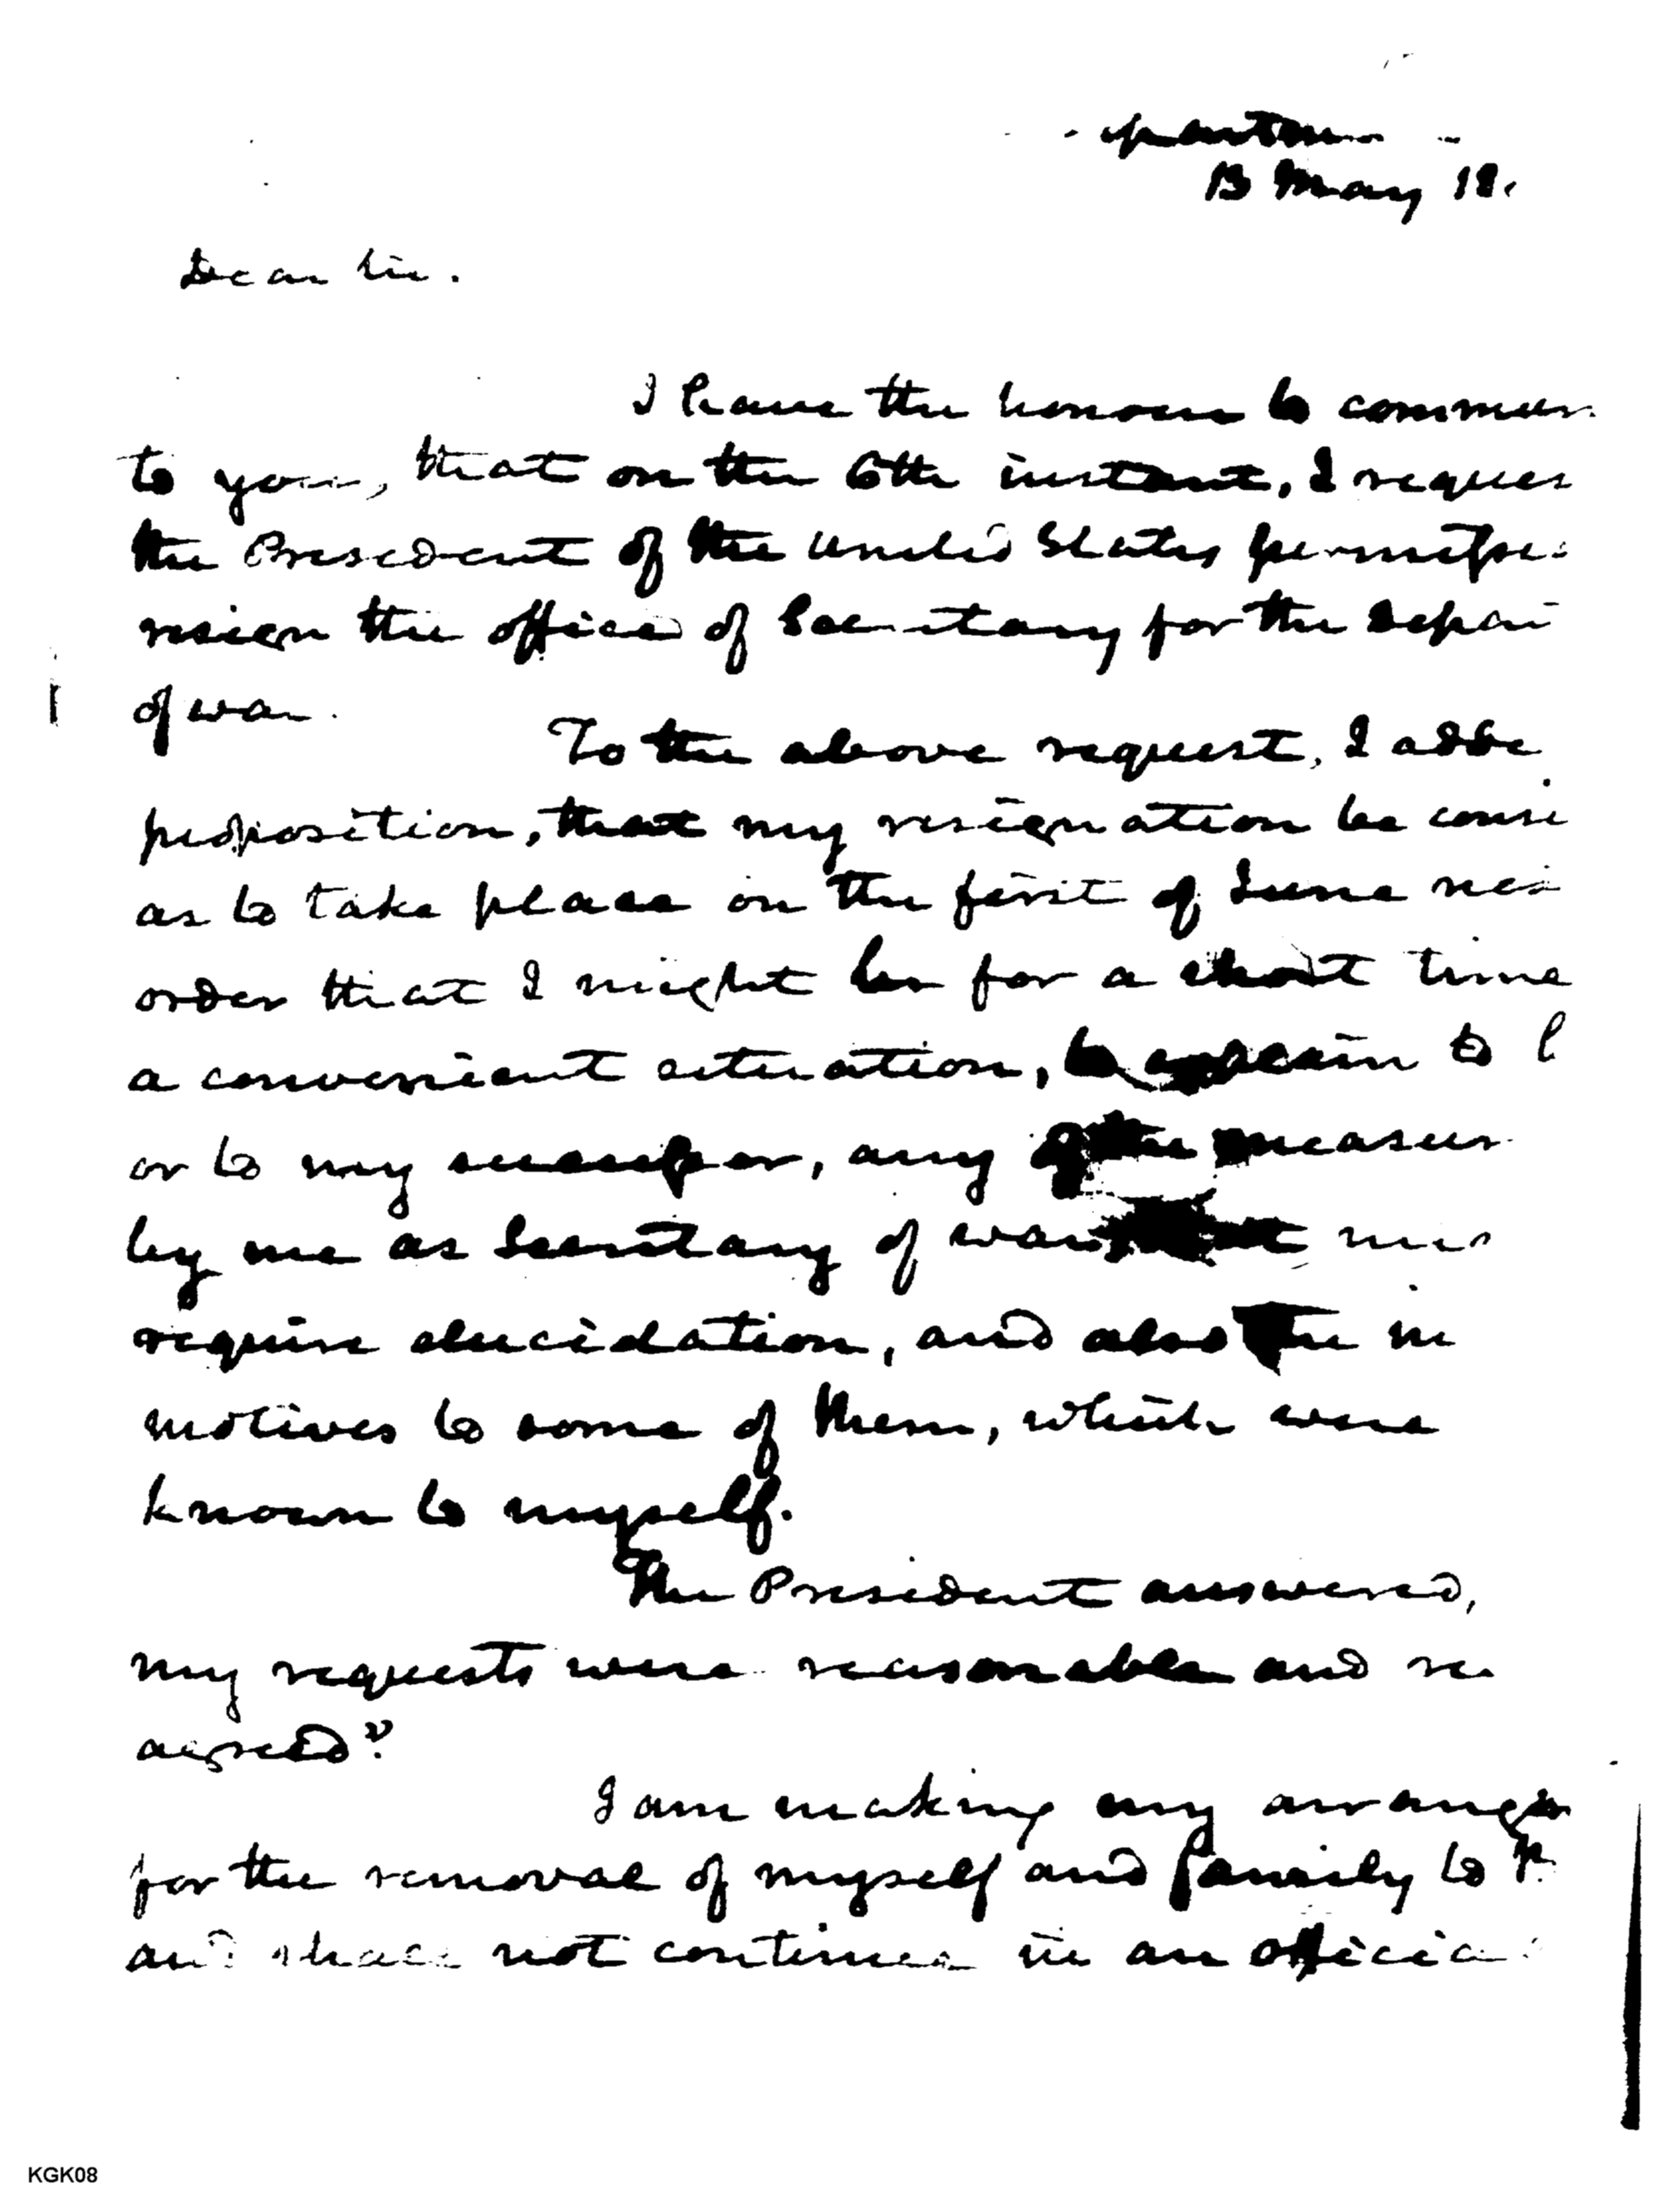 13 May 18
Dear Sir.
I have the honour to commun
to you, that on the 6th instant, I reques
the President of the United States permissi
resign the office of Secretary for the Depar
of war.
To the above request, I adde
proposition, that my resignation be consi
as to take place on the first of June nex
order that I might be for a short time
a convenient situation, to explain to h
or to my successor, any of the measur
by me as Secretary of war that
require elucidation, and also the in
motives to some of them, which were
known to myself.
The President answered,
my requests were reasonable and re
agreed"
I am making my arrange
for the removal of myself and family to
and shall not continue in an officia
KGK08